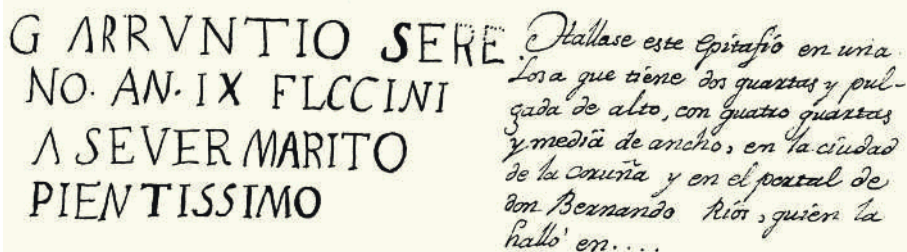 G ARRVNTIO SERE
NO. AN. IX FLCCINI
A SEVER MARITO
PIENTISSIMO
Hallase este epitafio en una
Losa que tiene dos quartas y pul-
gada de alto, con quatro quartas
y mediã de ancho, en la ciudad
de la coruña y en el portal de
don Bernando Rios, quien la
halló en....